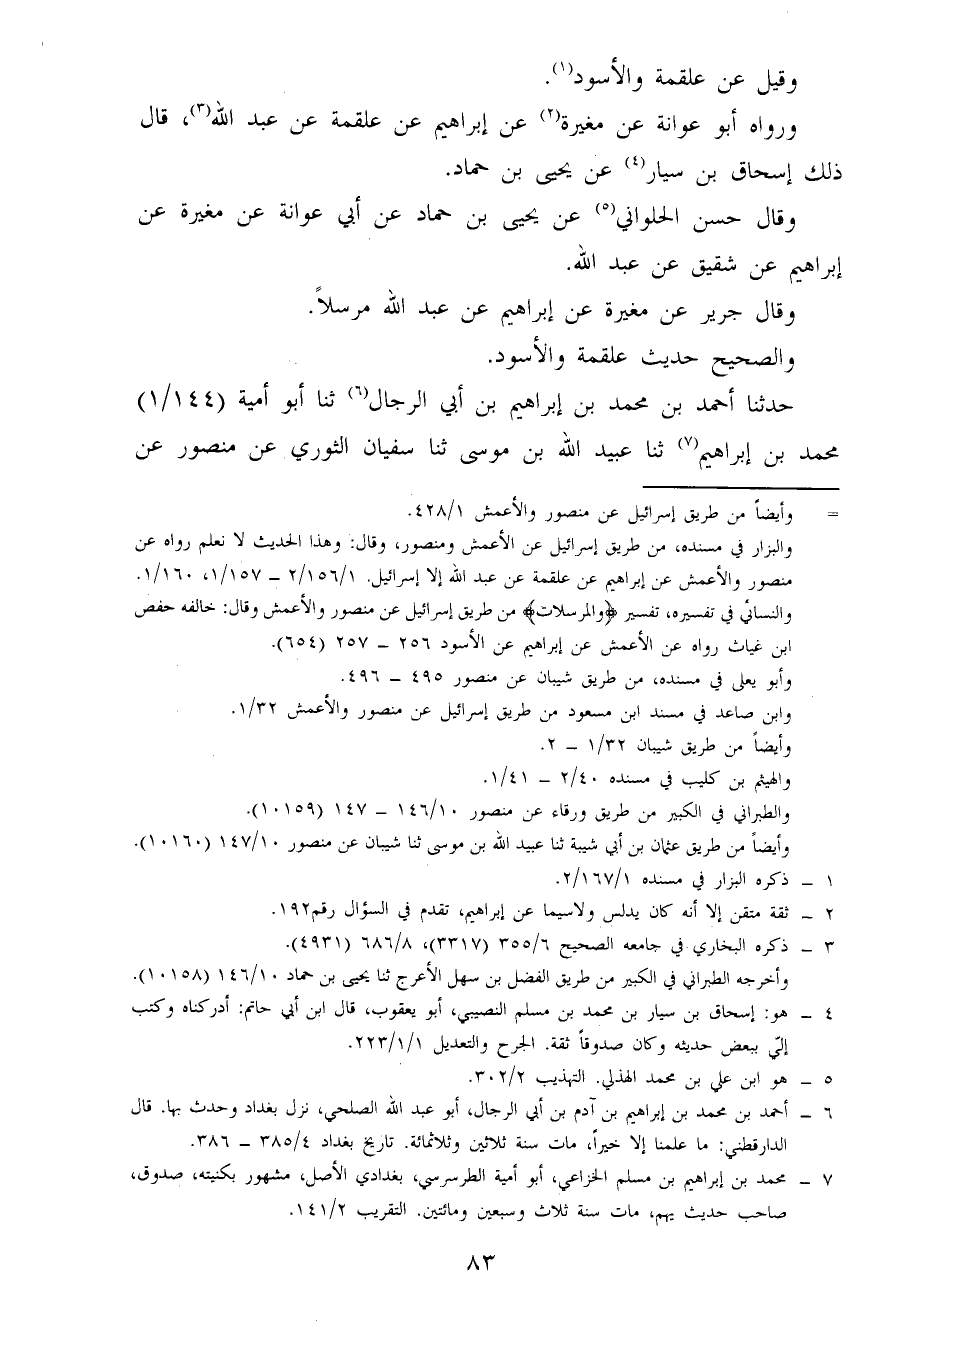 وقيل عن علقمة والأسود(١).
ورواه أبو عوانة عن مغيرة(٢) عن إبراهيم عن علقمة عن عبد الله(٣)، قال
ذلك إسحاق بن سيار(٤) عن يحيى بن حماد.
وقال حسن الحلواني(٥) عن يحيى بن حماد عن أبي عوانة عن مغيرة عن
إبراهيم عن شقيق عن عبد الله.
وقال جرير عن مغيرة عن إبراهيم عن عبد الله مرسلاً.
والصحيح حديث علقمة والأسود.
حدثنا أحمد بن محمد بن إبراهيم بن أبي الرجال(٦) ثنا أبو أمية (١/١٤٤)
محمد بن إبراهيم(٧) ثنا عبيد الله بن موسى ثنا سفيان الثوري عن منصور عن
= وأيضاً من طريق إسرائيل عن منصور والأعمش ٤٢٨/١.
والبزار في مسنده، من طريق إسرائيل عن الأعمش ومنصور، وقال: وهذا الحديث لا نعلم رواه عن
منصور والأعمش عن إبراهيم عن علقمة عن عبد الله إلا إسرائيل. ٢/١٥٦/١ – ١/١٥٧، ١/١٦٠.
والنسائي في تفسيره، تفسير ﴿والمرسلات﴾ من طريق إسرائيل عن منصور والأعمش وقال: خالفه حفص
ابن غياث رواه عن الأعمش عن إبراهيم عن الأسود ٢٥٦ – ٢٥٧ (٦٥٤).
وأبو يعلى في مسنده، من طريق شيبان عن منصور ٤٩٥ – ٤٩٦.
وابن صاعد في مسند ابن مسعود من طريق إسرائيل عن منصور والأعمش ١/٣٢.
وأيضاً من طريق شيبان ١/٣٢ – ٢.
والهيثم بن كليب في مسنده ٢/٤٠ – ١/٤١.
والطبراني في الكبير من طريق ورقاء عن منصور ١٤٦/١٠ – ١٤٧ (١٠١٥٩).
وأيضاً من طريق عثمان بن أبي شيبة ثنا عبيد الله بن موسى ثنا شيبان عن منصور ١٤٧/١٠ (١٠١٦٠).
١ – ذكره البزار في مسنده ٢/١٦٧/١.
٢ – ثقة متقن إلا أنه كان يدلس ولاسيما عن إبراهيم، تقدم في السؤال رقم١٩٢.
٣ – ذكره البخاري في جامعه الصحيح ٣٥٥/٦ (٣٣١٧)، ٦٨٦/٨ (٤٩٣١).
وأخرجه الطبراني في الكبير من طريق الفضل بن سهل الأعرج ثنا يحيى بن حماد ١٤٦/١٠ (١٠١٥٨).
٤ – هو: إسحاق بن سيار بن محمد بن مسلم النصيبي، أبو يعقوب، قال ابن أبي حاتم: أدركناه وكتب
إليّ ببعض حديثه وكان صدوقاً ثقة. الجرح والتعديل ٢٢٣/١/١.
٥ – هو ابن علي بن محمد الهذلي. التهذيب ٣٠٢/٢.
٦ – أحمد بن محمد بن إبراهيم بن آدم بن أبي الرجال، أبو عبد الله الصلحي، نزل بغداد وحدث بها. قال
الدارقطني: ما علمنا إلا خيراً، مات سنة ثلاثين وثلاثمائة. تاريخ بغداد ٣٨٥/٤ – ٣٨٦.
٧ – محمد بن إبراهيم بن مسلم الخزاعي، أبو أمية الطرسرسي، بغدادي الأصل، مشهور بكنيته، صدوق،
صاحب حديث يهم، مات سنة ثلاث وسبعين ومائتين. التقريب ١٤١/٢.
٨٣